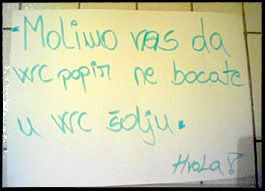 Molimo vas da
WC papir ne bacate
u WC šolju.
Hvala!